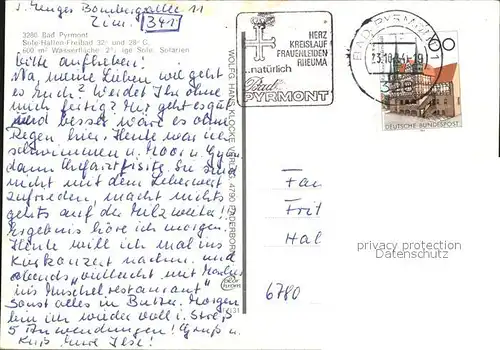 J. Unger Bombergallee 11
Zim. 341
3280 Bad Pyrmont
Sole-Hallen-Freibad 32° und 28° C,
600 m² Wasserfläche 2°, ige Sole, Solarien
bitte aufheben!
Na, meine Lieben wie geht
es Euch? Werdet Ihr ohne
mich fertig? Mir geht es gut
und besser wäre es ohne
Regen hier. Heute war ich
schwimmen u. Moor u. Gym.
dann Chefarztvisite. Sie sind
nicht mit dem Leberwert
zufrieden, macht nichts
gehts auf der Milz weiter!
Ergebnis höre ich morgen.
Heute will ich mal ins
Kurkonzert nachm. und
abends "vielleicht mit
ins Muschelrestaurant"
sonst alles in Butter. Morgen
bin ich wieder voll i. Streß
5 Anwendungen! Gruß u.
Kuß Eure Ilse!
WOLFG. HANS KLOCKE VERLAG, 4790 PADERBORN
HERZ
KREISLAUF
FRAUENLEIDEN
RHEUMA
...natürlich
Bad
PYRMONT
BAD PYRMONT 1
23.10.
328
DEUTSCHE BUNDESPOST
Fam
Frit
Hal
6780
privacy protection
Datenschutz